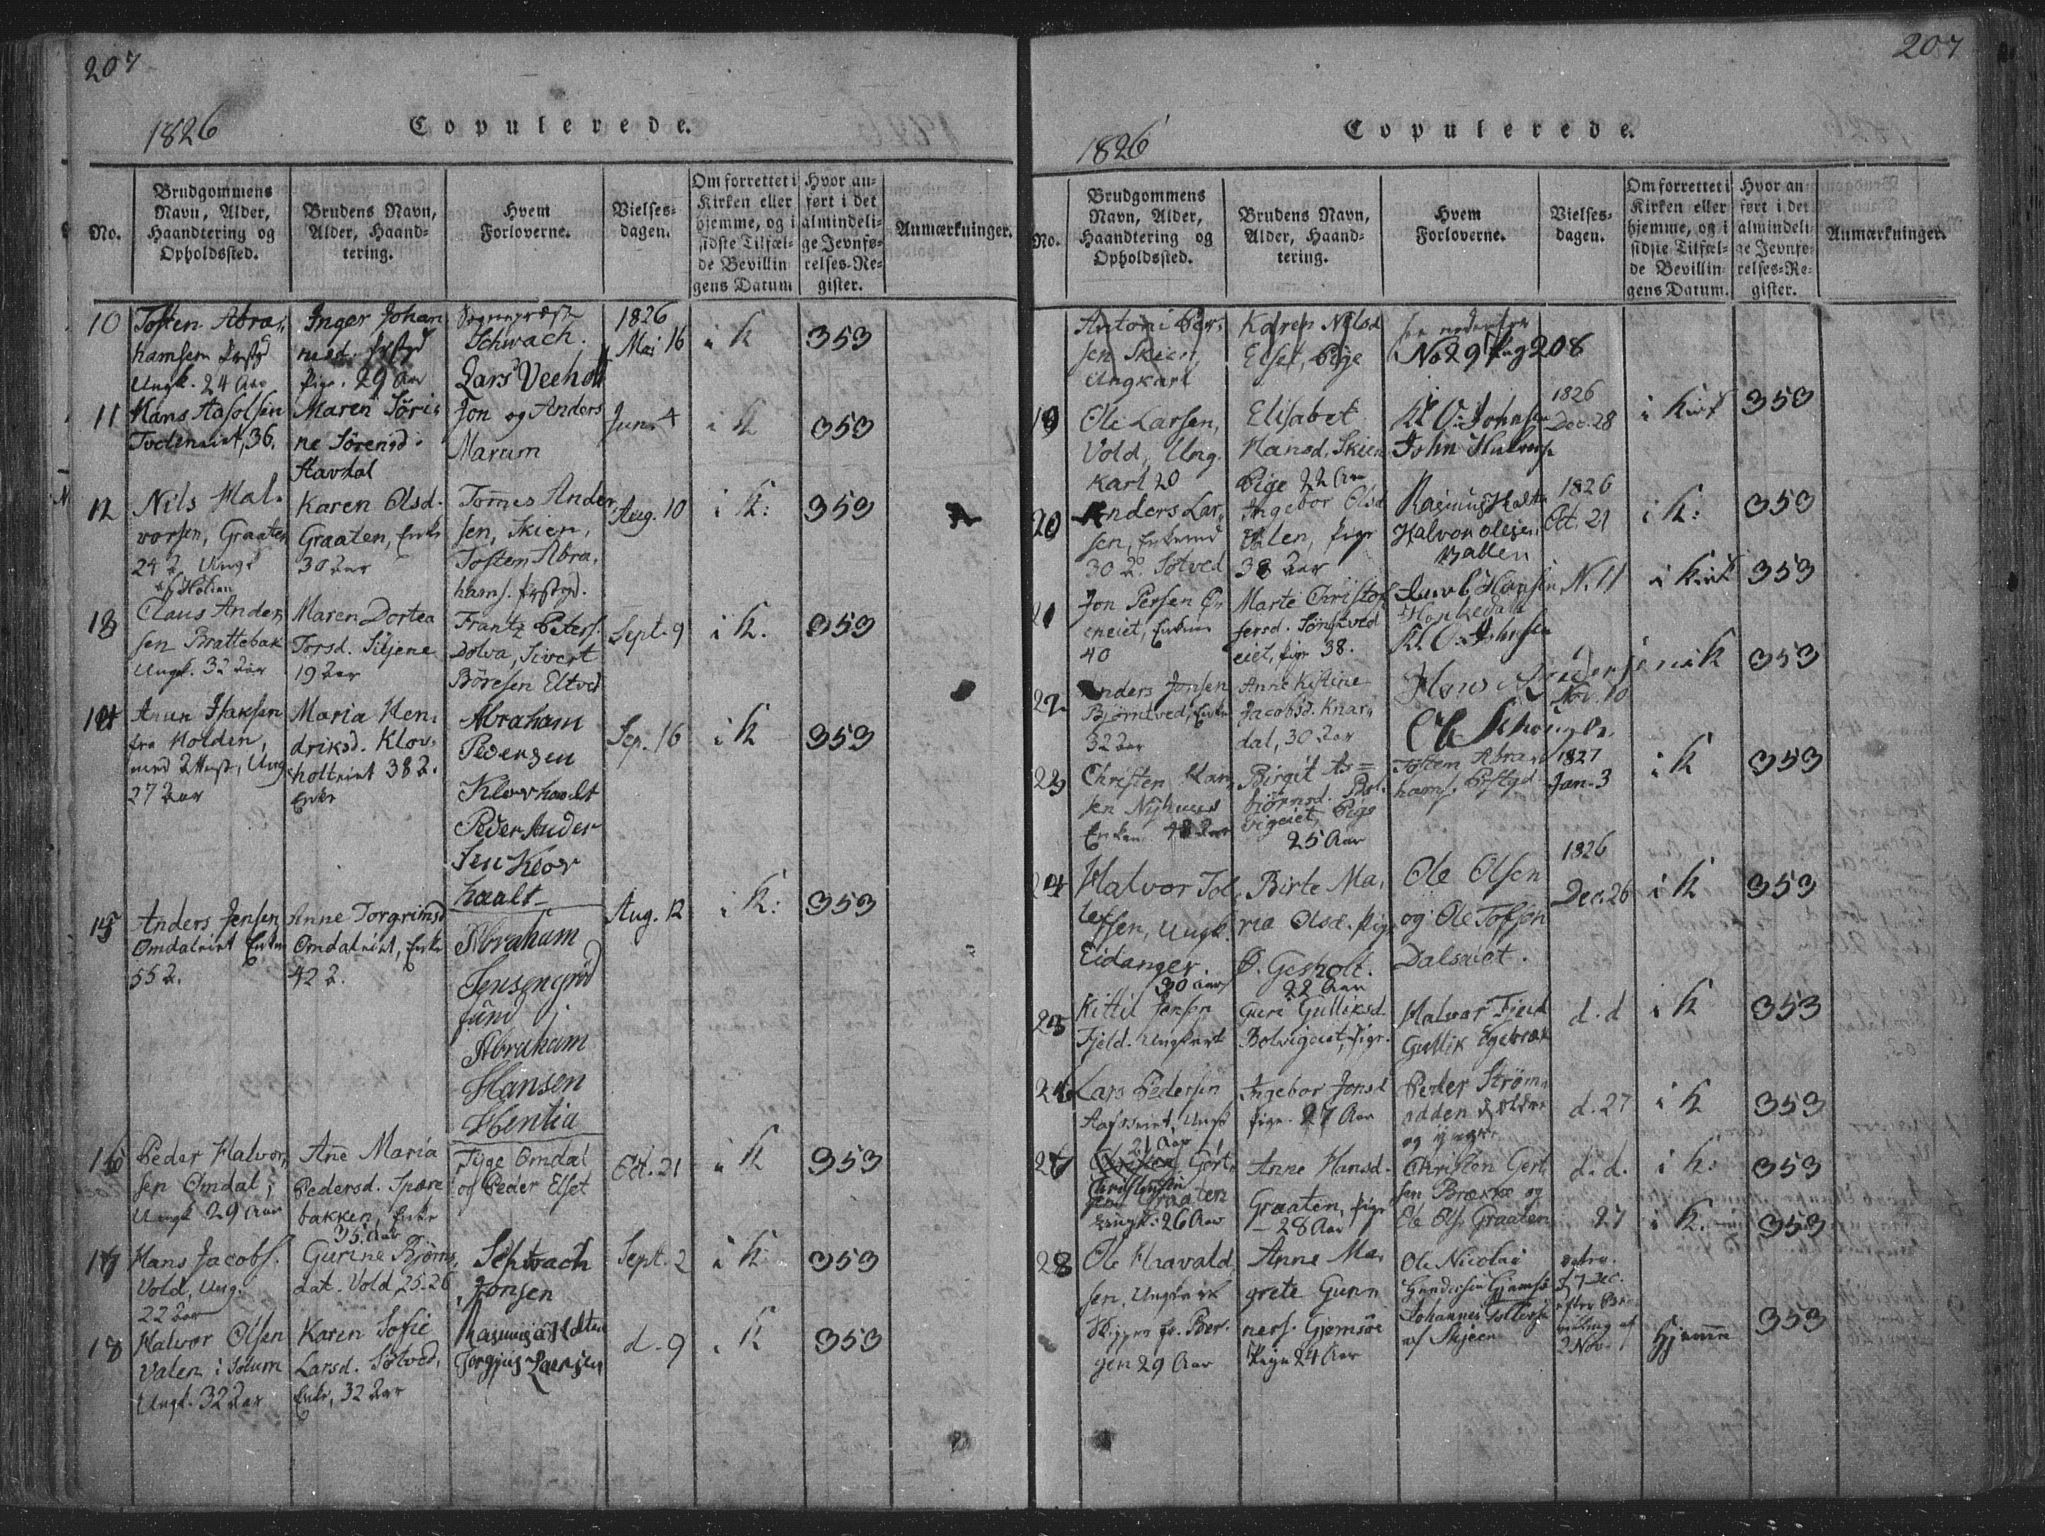 207
1826
Copulerede.
No.
Brudgommens
Navn, Alder,
Haandtering og
Opholdssted.
Brudens Navn,
Alder, Haand-
tering.
Hvem
Forloverne.
Vielses-
dagen.
Om forrettet i
Kirken eller
hjemme, og i
sidste Tilfæl-
de Bevillin
gens Datum
Hvor an-
ført i det
almindeli-
ge Jevnfø-
relses-Re-
gister.
Anmærkninger.
10
Tosten Abra-
hamsen
Ungk. 24 Aar
Inger Johan
nesd.
pige. 29 Aar
Sogneprest
Schwach.
Lars Veeholt
1826
Mai 16
i K
353
11
Hans Aasolsen
36.
Maren Søri-
ne Sørensd.
Havdal
Jon og Anders
Marum
Jun. 4
i K
353
12
Nils Hal-
vorsen, Graaten
24 Ungk
Karen Olsd.
Graaten, Enke
30 Aar
Tornes Ander
sen, Skien,
Tosten Abra,
hams.
Aug. 10
i K:
353
13
af Holden
Claus Ander,
sen Brattebak
Ungk. 32 Aar
Maren Dortea
Torsd. Siljene
19 Aar
Frantz Peters.
Dolva, Sivert
Børesen Eltved
Sept. 9
i K.
353
14
Isaksen
fra Holden,
27 Aar
Maria Hen,
driksd. Klov-
holteiet 38
Enke
Abraham
Pedersen
Klovhoolt
Peder Ander
sen Klov
haalt
Sep. 16
i K
353
15
Anders Jensen
Omdaleiet Enkem
55
Anne Torgrimsd
Omdaleiet, Enke
42
Abraham
Jensen
Abraham
Hansen
Hentia
Aug. 12
i K:
353
16
Peder Halvor,
sen Omdal,
Ungk 29 Aar
Ane Maria
Pedersd. Spære
bakken, Enke
35 Aar
Tyge Omdal
og Peder Elset
Oct. 21
i K
353
17
Hans Jacobs.
Vold, Ung.
22 Aar
Gurine Bjørns,
dat. Vold, 25-26
Schwach
Jonsen
Sept. 2
i K
353
18
Halvor Olsen
Valen i Solum
Ungk. 32 Aar
Karen Sofie
Larsd. Sotved,
Enke, 32 Aar
Rasmus Holte
Torgjus Larsen
d. 9
i K
353
207
1826
Copulerede.
No.
Brudgommens
Navn, Alder,
Haandtering og
Opholdssted.
Brudens Navn,
Alder, Haand-
tering.
Hvem
Forloverne.
Vielses-
dagen.
Om forrettet i
Kirken eller
hjemme, og i
sidste Tilfæl-
de Bevillin-
gens Datum.
Hvor an
ført i det
almindeli-
ge Jevnfø-
relses-Re-
gister.
Anmærkninger.
Antoni Per-
sen Skien,
Ungkarl
Karen Nilsd
Elset, Pige
No 29 Pag 208
19
Ole Larsen,
Vold, Ung.
karl 20
Elisabet
Hansd. Skien
Pige 22 Aar
Kl O. Johnsen
John
1826
Dec. 28
i Kirk
353
20
Anders Lar,
sen, Enkemd
30 Sotved
Ingebor Olsd
Valen, pige
38 Aar
Rasmus Holte
Halvor Olesen
Vallen
1826
Oct. 21
i K:
353
21
Jon Persen
eneiet, Enkem
40
Marte Christof
fersd. Sønstved
eiet, pige 38.
Jacob Hansen
Kl O. Johnsen
N. 11
i Kirk
353
22
Anders Jonsen
Bjørntved, Enkm
32 Aar
Anne Kistine
Jacobsd. Knar,
dal, 30 Aar
Hans Andersen
Nov. 10
i K
353
23
Christen
sen Nyhuus
Enkem. 48 Aar
Birgit As=
bjørnsd. Bøl-
vigeiet, Pige
25 Aar
Tosten Abra-
hams.
1827
Jan. 3
i K
353
24
Halvor Tol,
lefsen, Ungk.
Eidanger.
30 Aar
Birte Ma,
ria Olsd. Pige
Ø. Gisholt.
22 Aar
Ole Olsen
og Ole Tofson
Dalseiet.
1826
Dec. 26
i K
353
25
Kittil Jenson
Fjeld. Ungkart
Guri Gulliksd.
Bølvigeiet, Pige.
Halvor Fjeld
Gullik Egebræk
d. d
i K
353
26
Lars Pedersen
Ungk
21 Aar
Ingebor Jonsd
pige. 27 Aar
Peder Strøm,
odden
d. 27
i K
353
27
Gort,
Christensen
Graaten
Ungk: 26 Aar
Anne Hansd.
Graaten, pige
28 Aar
Christen Gert,
sen Brække og
Ole Ols. Graaten
d. d.
27
i K:
i K.
353
353
28
Ole Harvald
sen, Ungkarl
Skipper fr. Ber-
gen 29 Aar
Anne Ma,
grete Gunn
ners. Gjemsøe
Pige 24 Aar
Ole Nicolai
Gundersen Gjemsø
Johannes
af Skjeen
7 Dec.
efter Be
villing af
2 Nov.
hjemme
353